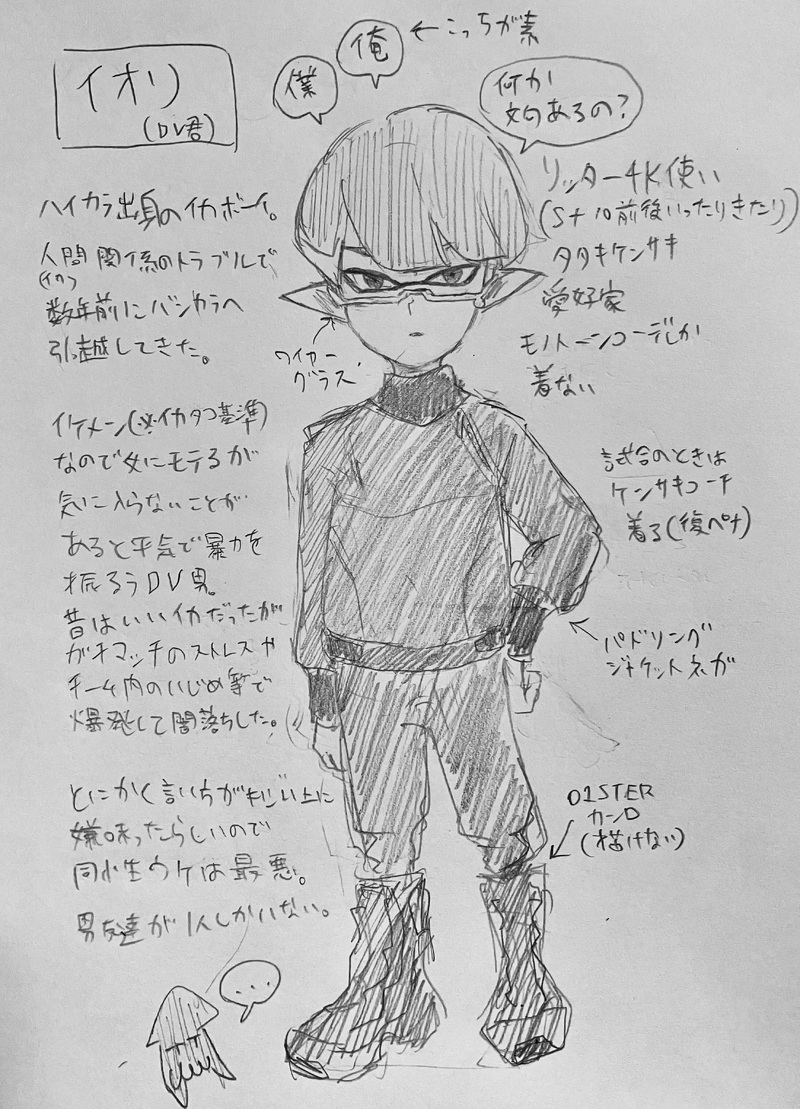 イオリ
(DV君)
僕
俺
←こっちが素
何か
文句あるの?
ハイカラ出身のイカボーイ。
人間関係のトラブルで
(イカ)
数年前にバンカラへ
引越してきた。
ワイヤー
グラス
リッター4K使い
(S+10前後いったりきたり)
タタキケンサキ
愛好家
モノトーンコーデしか
着ない
イケメン(※イカタコ基準)
なので女にモテるが
気に入らないことが
あると平気で暴力を
振るうDV男。
昔はいいイカだったが
ガチマッチのストレスや
チーム内のいじめ等で
爆発して闇落ちした。
試合のときは
ケンサキコーチ
着る(復ペナ)
パドリング
ジャケットネガ
とにかく言い方がキツい上に
嫌味ったらしいので
同性ウケは最悪。
男友達が1人しかいない。
01STER
カーロ
(描けない)
...